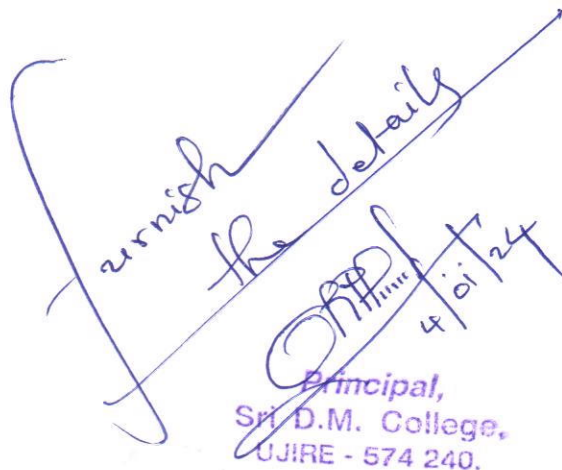 Furnish
the details
4/01/24
Principal,
Sri D.M. College,
UJIRE - 574 240.